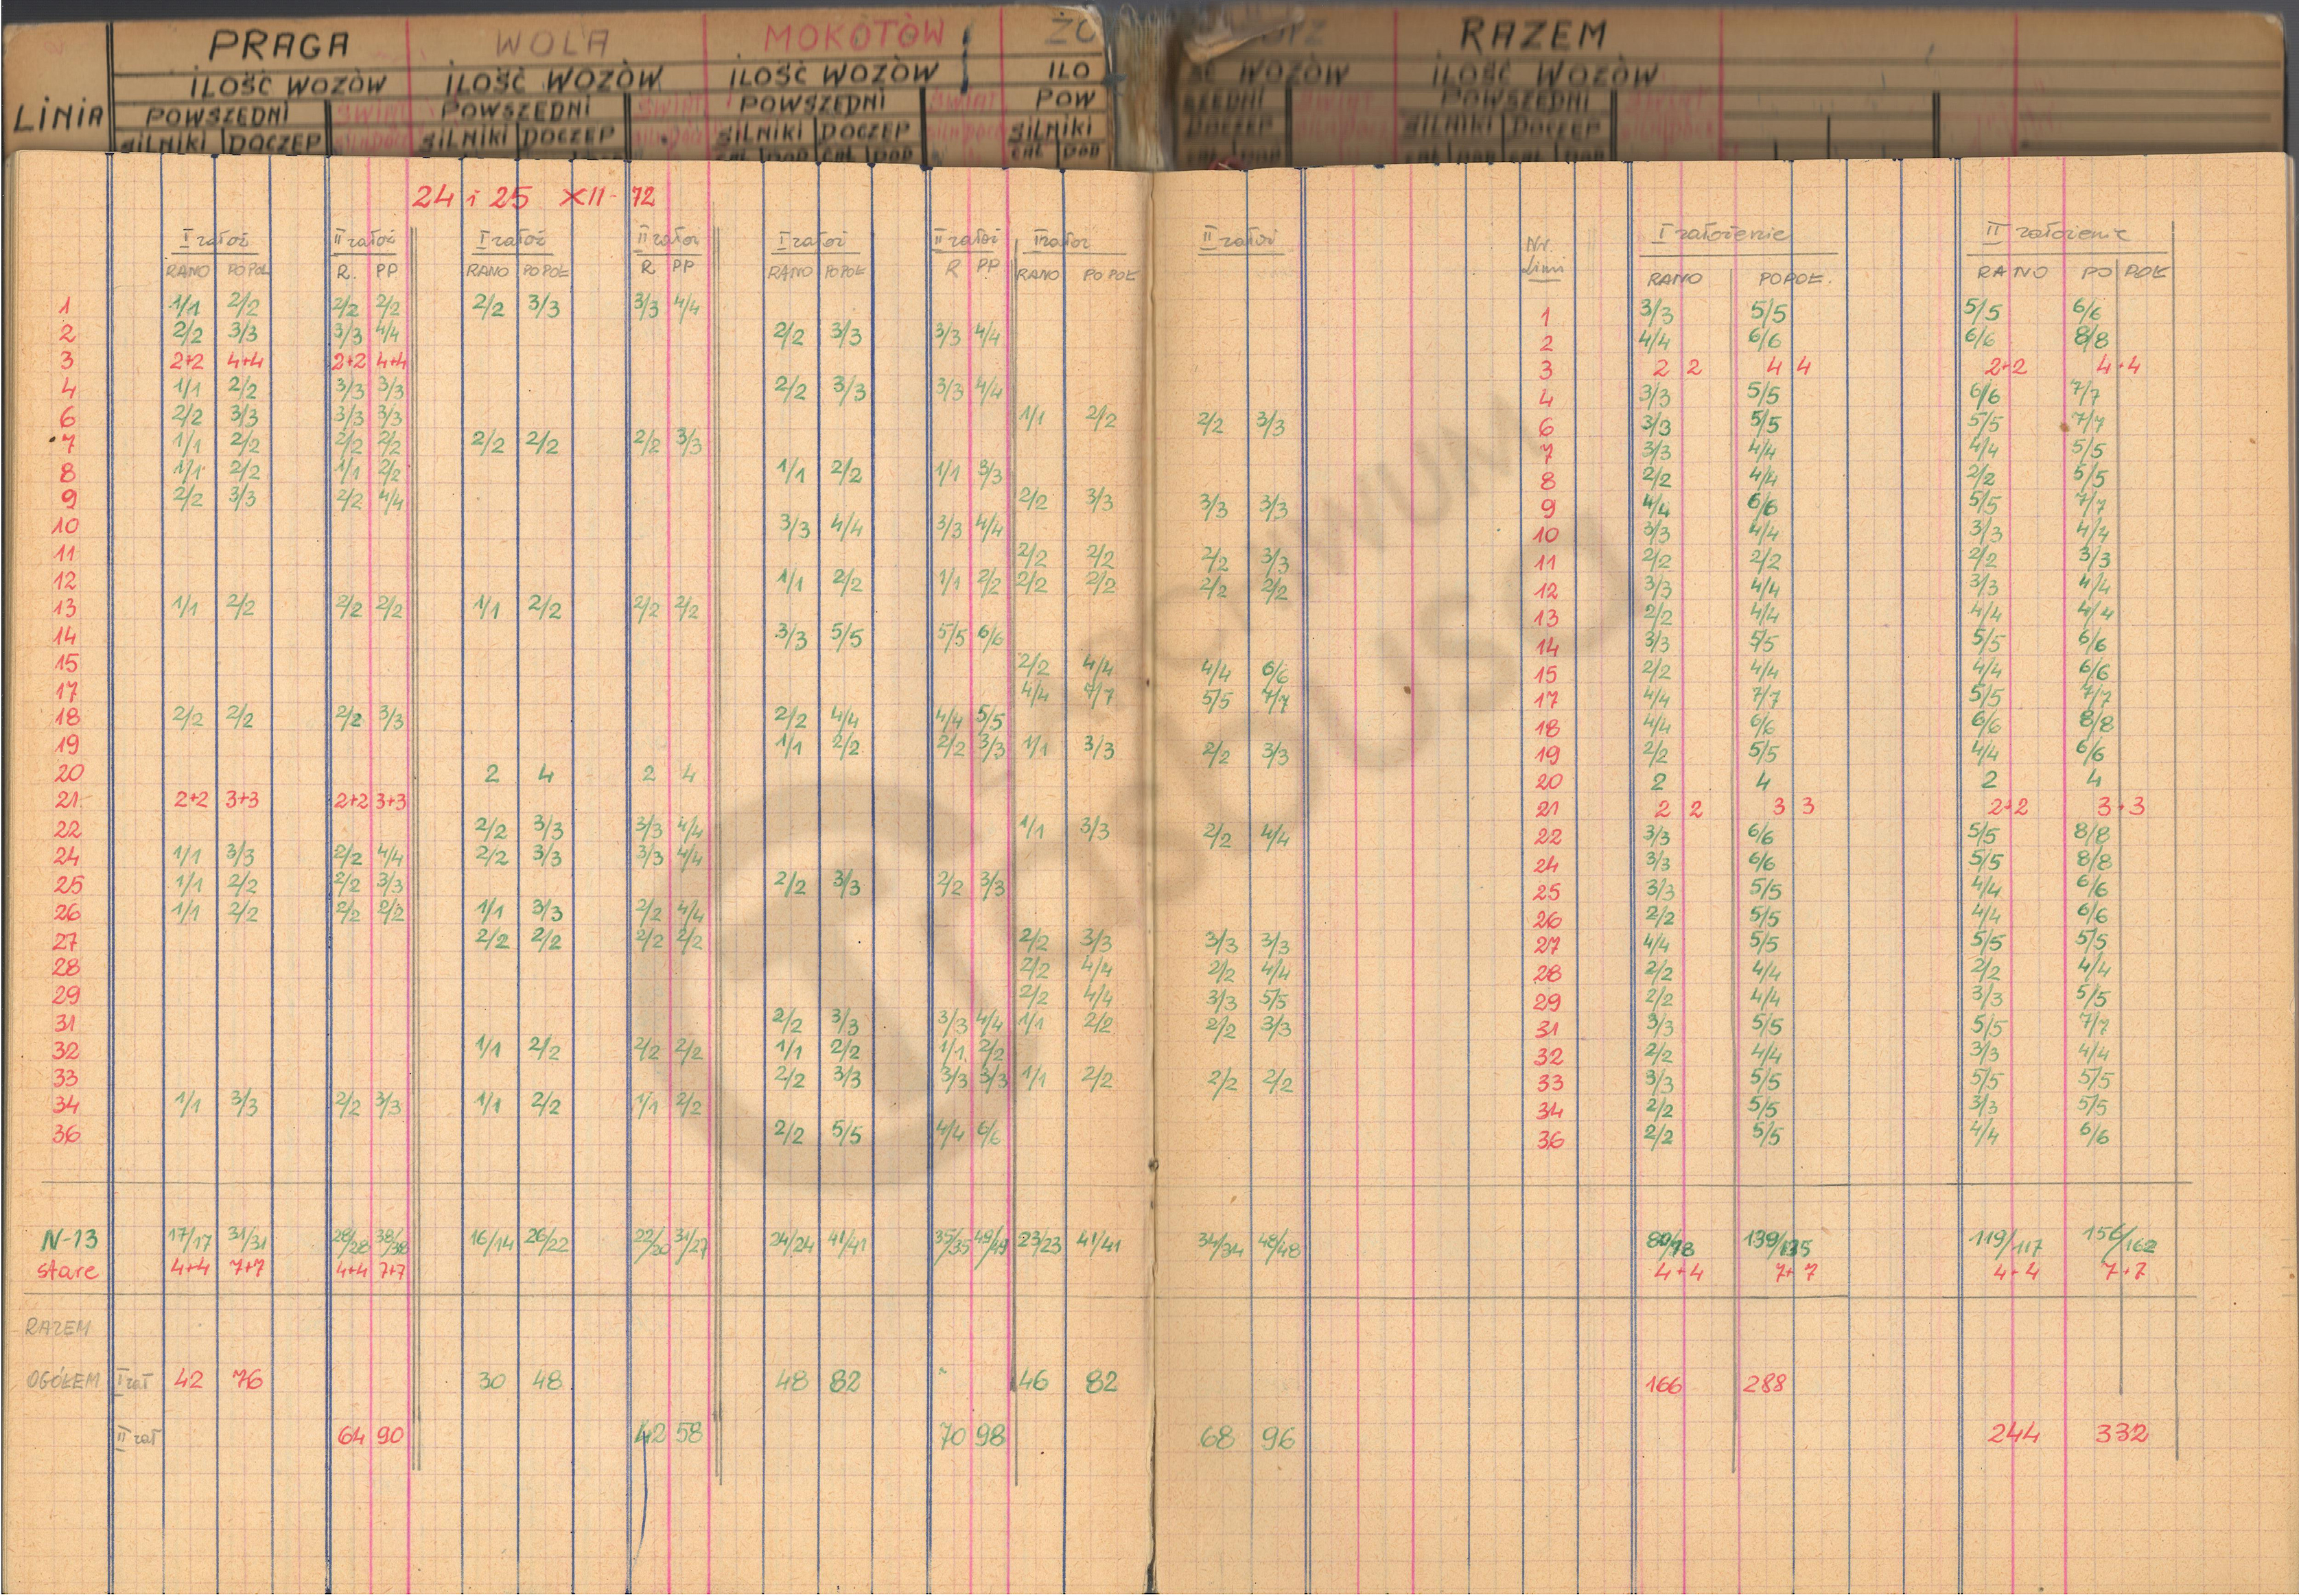 PRAGA WOLA MOKOTÓW ŻO RAZEM
ILOŚĆ WOZÓW ILOŚĆ WOZÓW ILOŚĆ WOZÓW ILO ŚĆ WOZÓW ILOŚĆ WOZÓW
LINIA POWSZEDNI ŚWIĄT POWSZEDNI ŚWIĄT POWSZEDNI ŚWIĄT POW SZEDNI ŚWIĄT POWSZEDNI ŚWIĄT
SILNIKI DOCZEP SILNIKI DOCZEP SILNIKI DOCZEP SILNIKI DOCZEP SILNIKI DOCZEP
24 i 25 XII-72
I założ II założ I założ II założ I założ II założ I założ II założ Nr. Linii I założenie II założenie
RANO POPOŁ R. PP RANO POPOŁ R PP RANO POPOŁ R PP RANO POPOŁ RANO POPOŁ. RANO POPOŁ
1 1/1 2/2 2/2 2/2 2/2 3/3 3/3 4/4 1 3/3 5/5 5/5 6/6
2 2/2 3/3 3/3 4/4 2/2 3/3 3/3 4/4 2 4/4 6/6 6/6 8/8
3 2+2 4+4 2+2 4+4 3 2 2 4 4 2+2 4+4
4 1/1 2/2 3/3 3/3 2/2 3/3 3/3 4/4 4 3/3 5/5 6/6 7/7
6 2/2 3/3 3/3 3/3 1/1 2/2 2/2 3/3 6 3/3 5/5 5/5 7/7
7 1/1 2/2 2/2 2/2 2/2 2/2 2/2 3/3 7 3/3 4/4 4/4 5/5
8 1/1 2/2 1/1 2/2 1/1 2/2 1/1 3/3 8 2/2 4/4 2/2 5/5
9 2/2 3/3 2/2 4/4 2/2 3/3 3/3 3/3 9 4/4 6/6 5/5 7/7
10 3/3 4/4 3/3 4/4 10 3/3 4/4 3/3 4/4
11 2/2 2/2 2/2 3/3 11 2/2 2/2 2/2 3/3
12 1/1 2/2 1/1 2/2 2/2 2/2 2/2 2/2 12 3/3 4/4 3/3 4/4
13 1/1 2/2 2/2 2/2 1/1 2/2 2/2 2/2 13 2/2 4/4 4/4 4/4
14 3/3 5/5 5/5 6/6 14 3/3 5/5 5/5 6/6
15 2/2 4/4 4/4 6/6 15 2/2 4/4 4/4 6/6
17 4/4 7/7 5/5 7/7 17 4/4 7/7 5/5 7/7
18 2/2 2/2 2/2 3/3 2/2 4/4 4/4 5/5 18 4/4 6/6 6/6 8/8
19 1/1 2/2 2/2 3/3 1/1 3/3 2/2 3/3 19 2/2 5/5 4/4 6/6
20 2 4 2 4 20 2 4 2 4
21 2+2 3+3 2+2 3+3 21 2 2 3 3 2+2 3+3
22 2/2 3/3 3/3 4/4 1/1 3/3 2/2 4/4 22 3/3 6/6 5/5 8/8
24 1/1 3/3 2/2 4/4 2/2 3/3 3/3 4/4 24 3/3 6/6 5/5 8/8
25 1/1 2/2 2/2 3/3 2/2 3/3 2/2 3/3 25 3/3 5/5 4/4 6/6
26 1/1 2/2 2/2 2/2 1/1 3/3 2/2 4/4 26 2/2 5/5 4/4 6/6
27 2/2 2/2 2/2 2/2 2/2 3/3 3/3 3/3 27 4/4 5/5 5/5 5/5
28 2/2 4/4 2/2 4/4 28 2/2 4/4 2/2 4/4
29 2/2 4/4 3/3 5/5 29 2/2 4/4 3/3 5/5
31 2/2 3/3 3/3 4/4 1/1 2/2 2/2 3/3 31 3/3 5/5 5/5 7/7
32 1/1 2/2 2/2 2/2 1/1 2/2 1/1 2/2 32 2/2 4/4 3/3 4/4
33 2/2 3/3 3/3 3/3 1/1 2/2 2/2 2/2 33 3/3 5/5 5/5 5/5
34 1/1 3/3 2/2 3/3 1/1 2/2 1/1 2/2 34 2/2 5/5 3/3 5/5
36 2/2 5/5 4/4 6/6 36 2/2 5/5 4/4 6/6
N-13 17/17 31/31 28/28 38/38 16/14 26/22 22/20 31/27 24/24 41/41 35/35 49/49 23/23 41/41 34/34 48/48 80/78 139/135 119/117 156/162
stare 4+4 7+7 4+4 7+7 4+4 7+7 4+4 7+7
RAZEM
OGÓŁEM I zał 42 76 30 48 48 82 46 82 166 288
II zał 64 90 42 58 70 98 68 96 244 332